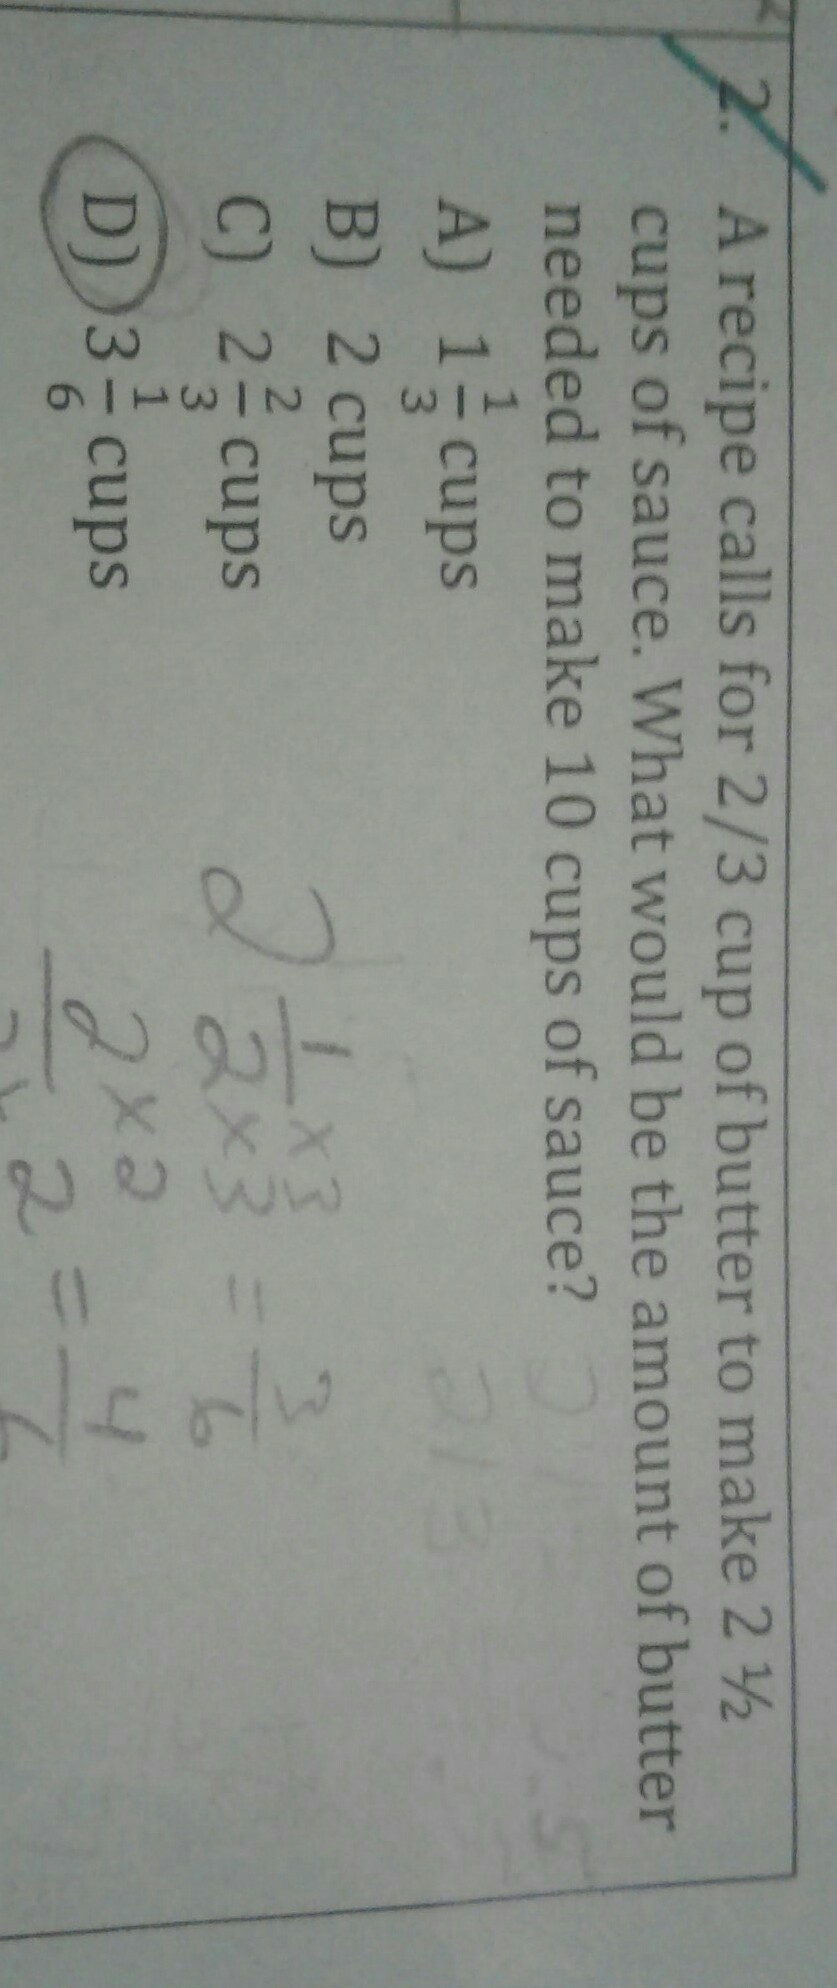 2. A recipe calls for 2/3 cup of butter to make 2 ½
cups of sauce. What would be the amount of butter
needed to make 10 cups of sauce?
A) 1 1/3 cups
B) 2 cups
C) 2 2/3 cups
D) 3 1/6 cups
2 1/2 × 3/3 = 3/6
2 × 2
× 2 = 4
2/3
.5